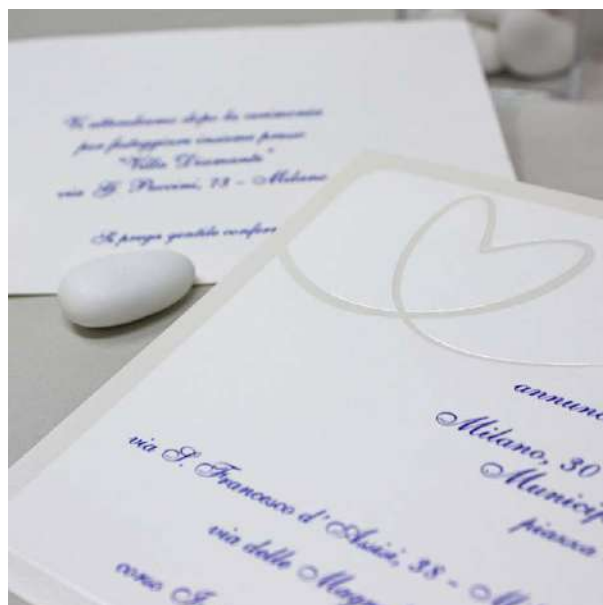 Vi attendiamo dopo la cerimonia
per festeggiare insieme presso
"Villa Diamante"
via G. Puccini, 73 - Milano
Si prega gentile confer
annunc
Milano, 30
Municip
piazza
via S. Francesco d'Assisi, 38 - Mi
via delle Magn
corso